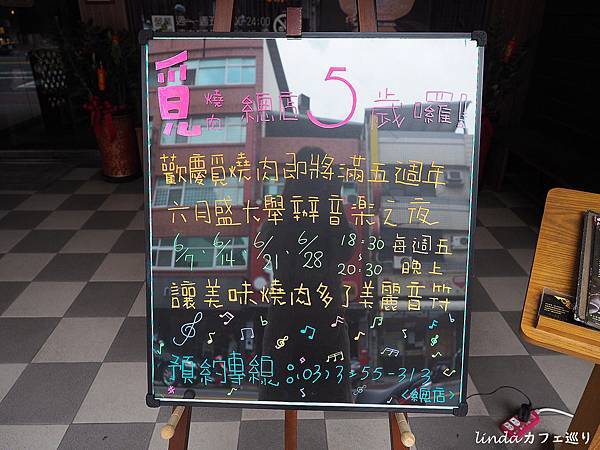 週一~週五
24:00
覓燒肉 總店 5 歲囉!
歡慶覓燒肉即將滿五週年
六月盛大舉辦音樂之夜
6/7、6/14、6/21、6/28 18:30~20:30 每週五晚上
讓美味燒肉多了美麗音符
預約專線:(03)3-55-313
<總店>
lindaカフェ巡り